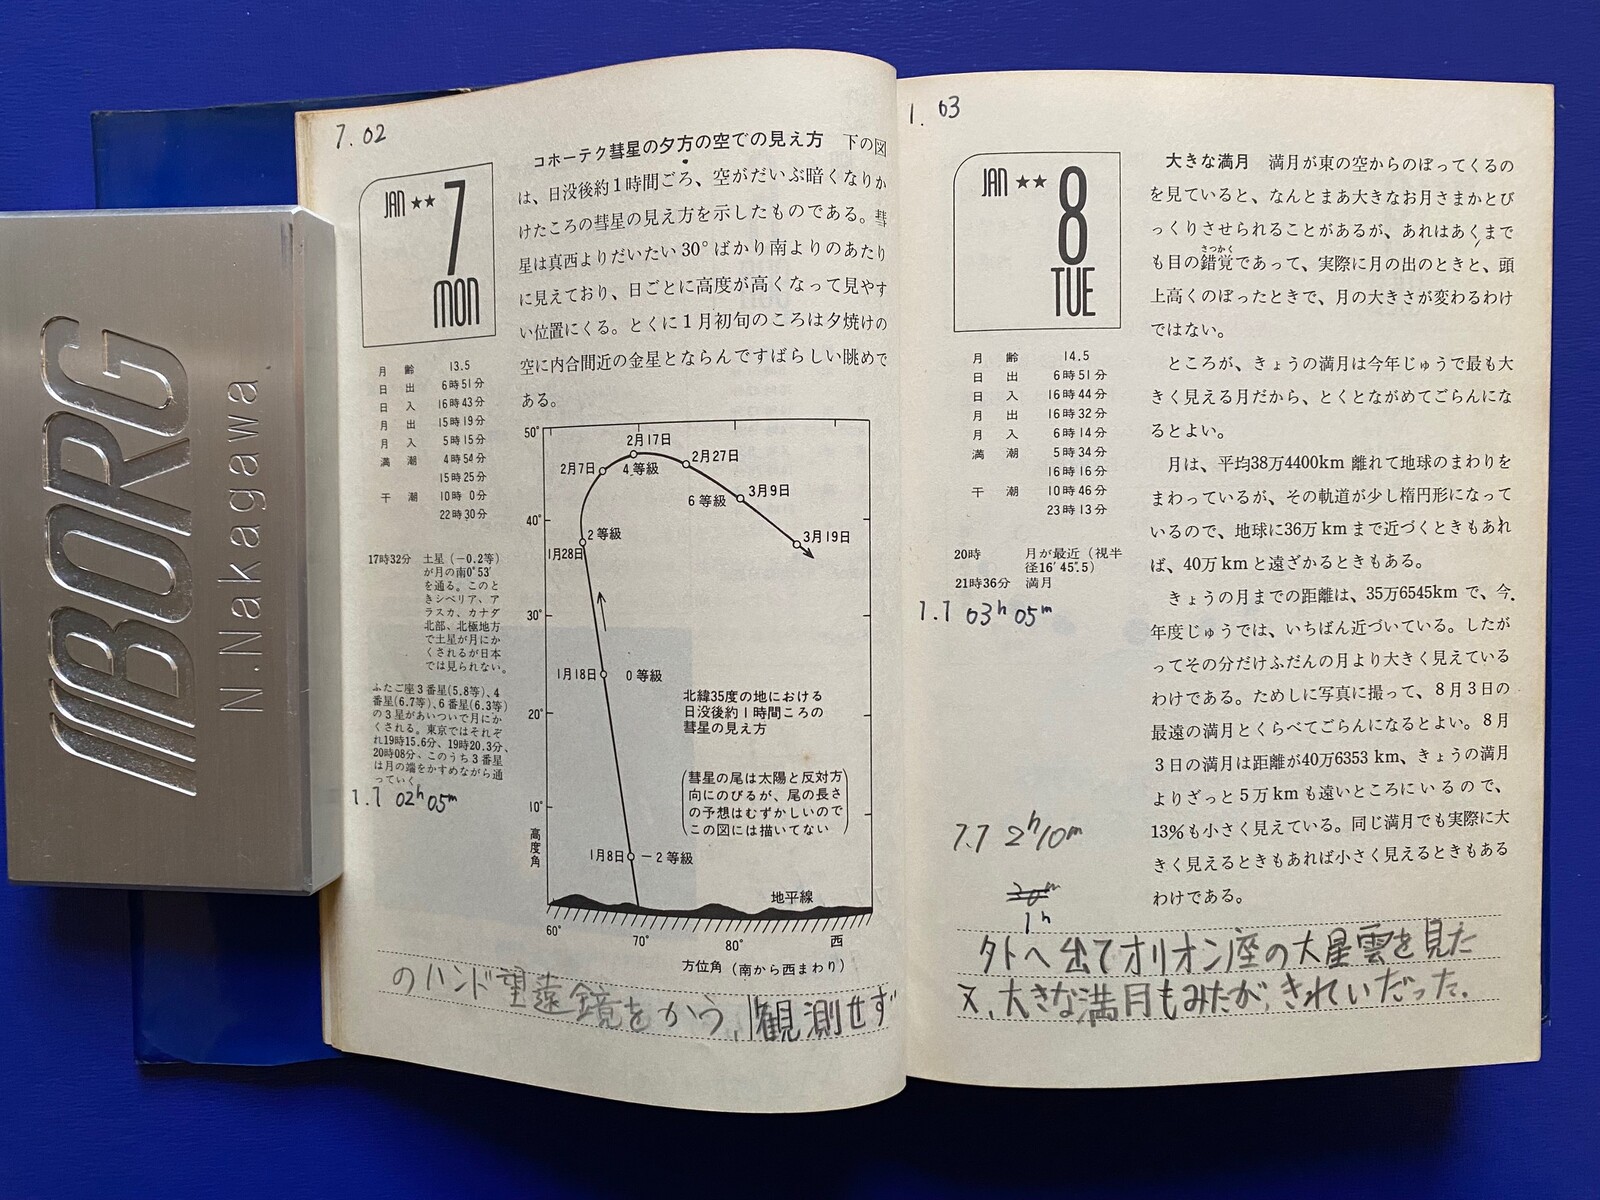 BORG
N.Nakagawa
7.02
JAN ★★ 7
MON
月齢 13.5
日出 6時51分
日入 16時43分
月出 15時19分
月入 5時15分
満潮 4時54分
15時25分
干潮 10時0分
22時30分
17時32分 土星(−0.2等)
が月の南0°53′
を通る。このと
きシベリア、ア
ラスカ、カナダ
北部、北極地方
で土星が月にか
くされるが日本
では見られない。
ふたご座3番星(5.8等)、4
番星(6.7等)、6番星(6.3等)
の3星があいついで月にか
くされる。東京ではそれぞ
れ19時15.6分、19時20.3分、
20時08分、このうち3番星
は月の端をかすめながら通
っていく。
1.7 02h 05m
コホーテク彗星の夕方の空での見え方 下の図
は、日没後約1時間ごろ、空がだいぶ暗くなりか
けたころの彗星の見え方を示したものである。彗
星は真西よりだいたい30°ばかり南よりのあたり
に見えており、日ごとに高度が高くなって見やす
い位置にくる。とくに1月初旬のころは夕焼けの
空に内合間近の金星とならんですばらしい眺めで
ある。
50°
2月17日
2月7日
4等級
2月27日
6等級
3月9日
40°
2等級
3月19日
1月28日
30°
1月18日
0等級
北緯35度の地における
日没後約1時間ころの
彗星の見え方
20°
彗星の尾は太陽と反対方
向にのびるが、尾の長さ
の予想はむずかしいので
この図には描いてない
10°
高度角
1月8日
−2等級
地平線
60°
70°
80°
西
方位角(南から西まわり)
のハンド望遠鏡をかう、観測せず
1.03
JAN ★★ 8
TUE
月齢 14.5
日出 6時51分
日入 16時44分
月出 16時32分
月入 6時14分
満潮 5時34分
16時16分
干潮 10時46分
23時13分
20時 月が最近(視半
径16′45″.5)
21時36分 満月
1.7 03h 05m
7.7 2h10m
30m
1h
大きな満月 満月が東の空からのぼってくるの
を見ていると、なんとまあ大きなお月さまかとび
っくりさせられることがあるが、あれはあくまで
も目の錯覚であって、実際に月の出のときと、頭
さっかく
上高くのぼったときで、月の大きさが変わるわけ
ではない。
ところが、きょうの満月は今年じゅうで最も大
きく見える月だから、とくとながめてごらんにな
るとよい。
月は、平均38万4400km離れて地球のまわりを
まわっているが、その軌道が少し楕円形になって
いるので、地球に36万kmまで近づくときもあれ
ば、40万kmと遠ざかるときもある。
きょうの月までの距離は、35万6545kmで、今
年度じゅうでは、いちばん近づいている。したが
ってその分だけふだんの月より大きく見えている
わけである。ためしに写真に撮って、8月3日の
最遠の満月とくらべてごらんになるとよい。8月
3日の満月は距離が40万6353km、きょうの満月
よりざっと5万kmも遠いところにいるので、
13%も小さく見えている。同じ満月でも実際に大
きく見えるときもあれば小さく見えるときもある
わけである。
外へ出てオリオン座の大星雲を見た
又、大きな満月もみたが、きれいだった。